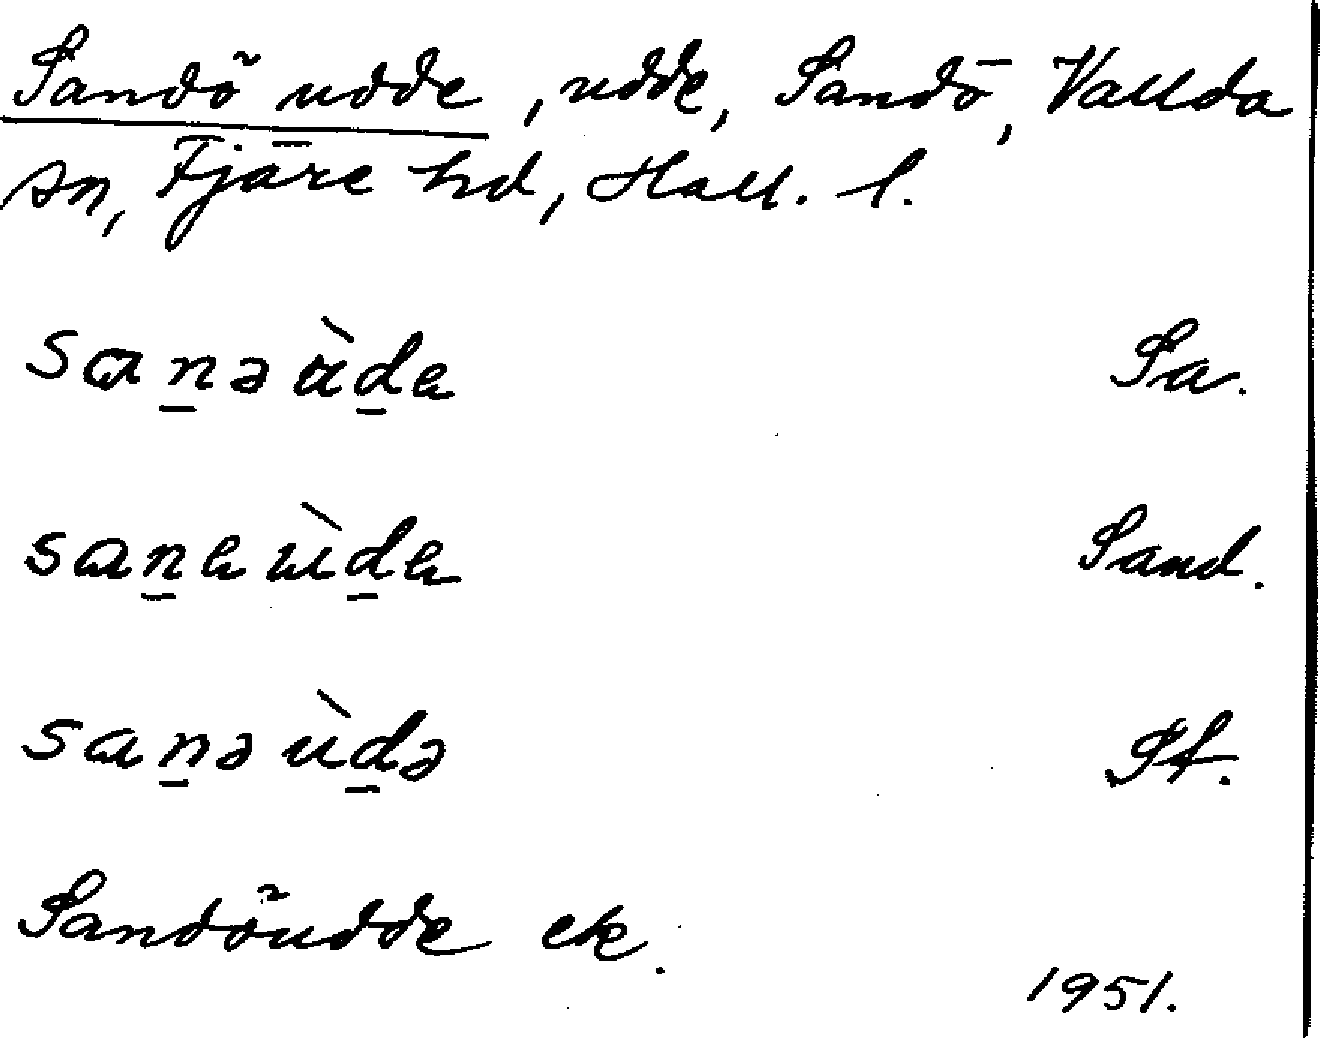 Sandö udde, udde, Sandö, Vallda
sn, Fjäre hd, Hall. l.
san̲əùd̲a Sa.
san̲aùd̲a Sand.
san̲əùd̲ə St.
Sandöudde ek.
1951.